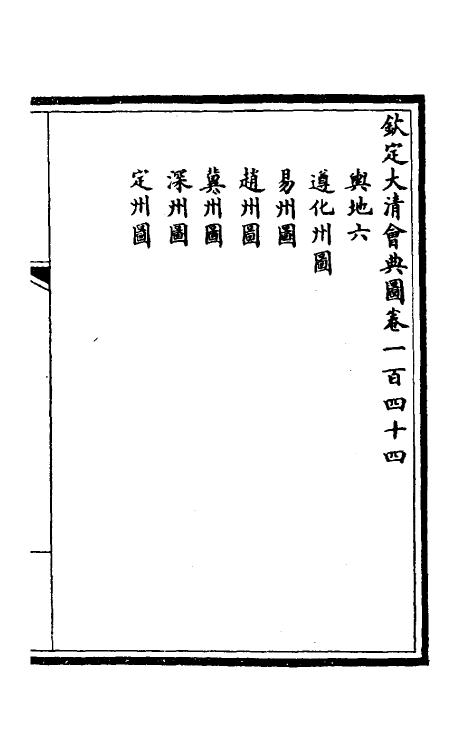 欽定大清會典圖卷一百四十四
輿地六
遵化州圖
易州圖
趙州圖
冀州圖
深州圖
定州圖